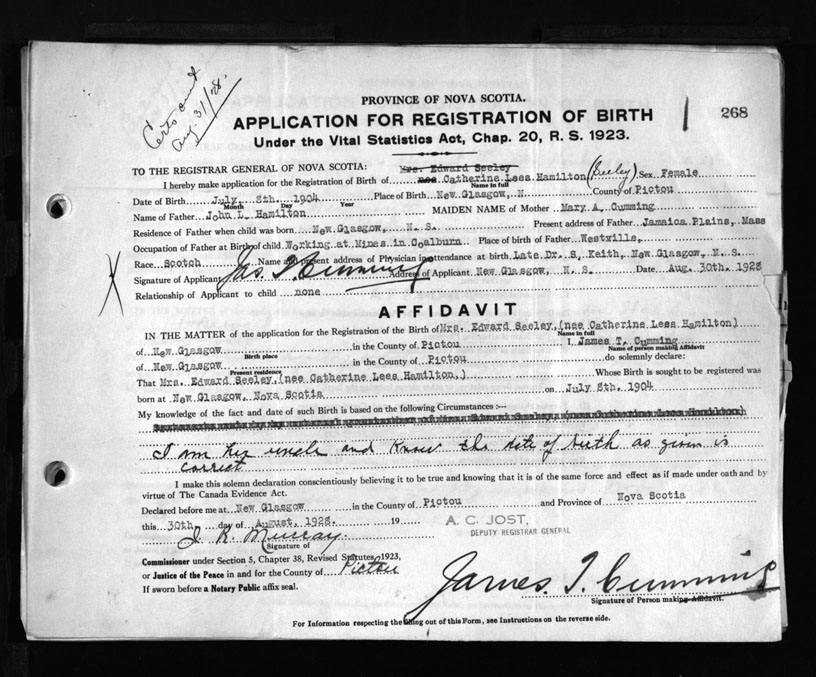 Certs out
Aug. 31/28.
PROVINCE OF NOVA SCOTIA.
APPLICATION FOR REGISTRATION OF BIRTH
268
Under the Vital Statistics Act, Chap. 20, R. S. 1923.
TO THE REGISTRAR GENERAL OF NOVA SCOTIA: Mrs. Edward Seeley
I hereby make application for the Registration of Birth of nee Catherine Lees Hamilton (Seeley) Sex Female
Name in full
Date of Birth July 8th, 1904 Place of Birth New Glasgow, N. County of Pictou
Month Day Year
Name of Father John L. Hamilton MAIDEN NAME of Mother Mary A. Cumming
Residence of Father when child was born New Glasgow, N. S. Present address of Father Jamaica Plains, Mass
Occupation of Father at Birth of child Working at Mines in Coalburn Place of birth of Father Westville,
Race Scotch Name and present address of Physician in attendance at birth Late Dr. S. Keith, New Glasgow, N. S.
Signature of Applicant Jas T. Cumming Address of Applicant New Glasgow, N. S. Date Aug. 30th. 1928
Relationship of Applicant to child none
AFFIDAVIT
IN THE MATTER of the application for the Registration of the Birth of Mrs. Edward Seeley, (nee Catherine Lees Hamilton)
Name in full
of New Glasgow in the County of Pictou I, James T. Cumming
Birth place Name of person making Affidavit
of New Glasgow in the County of Pictou do solemnly declare:
Present residence
That Mrs. Edward Seeley, (nee Catherine Lees Hamilton,) Whose Birth is sought to be registered was
born at New Glasgow, Nova Scotia on July 8th, 1904
My knowledge of the fact and date of such Birth is based on the following Circumstances :—
I am her uncle and know the date of birth as given is
correct
I make this solemn declaration conscientiously believing it to be true and knowing that it is of the same force and effect as if made under oath and by
virtue of The Canada Evidence Act.
Declared before me at New Glasgow in the County of Pictou and Province of Nova Scotia
this 30th day of August, 1928. 19
A. C. JOST,
DEPUTY REGISTRAR GENERAL
J. R. Murray
Signature of
Commissioner under Section 5, Chapter 38, Revised Statutes, 1923,
or Justice of the Peace in and for the County of Pictou
If sworn before a Notary Public affix seal.
James. T. Cumming
Signature of Person making Affidavit.
For Information respecting the filling out of this Form, see Instructions on the reverse side.